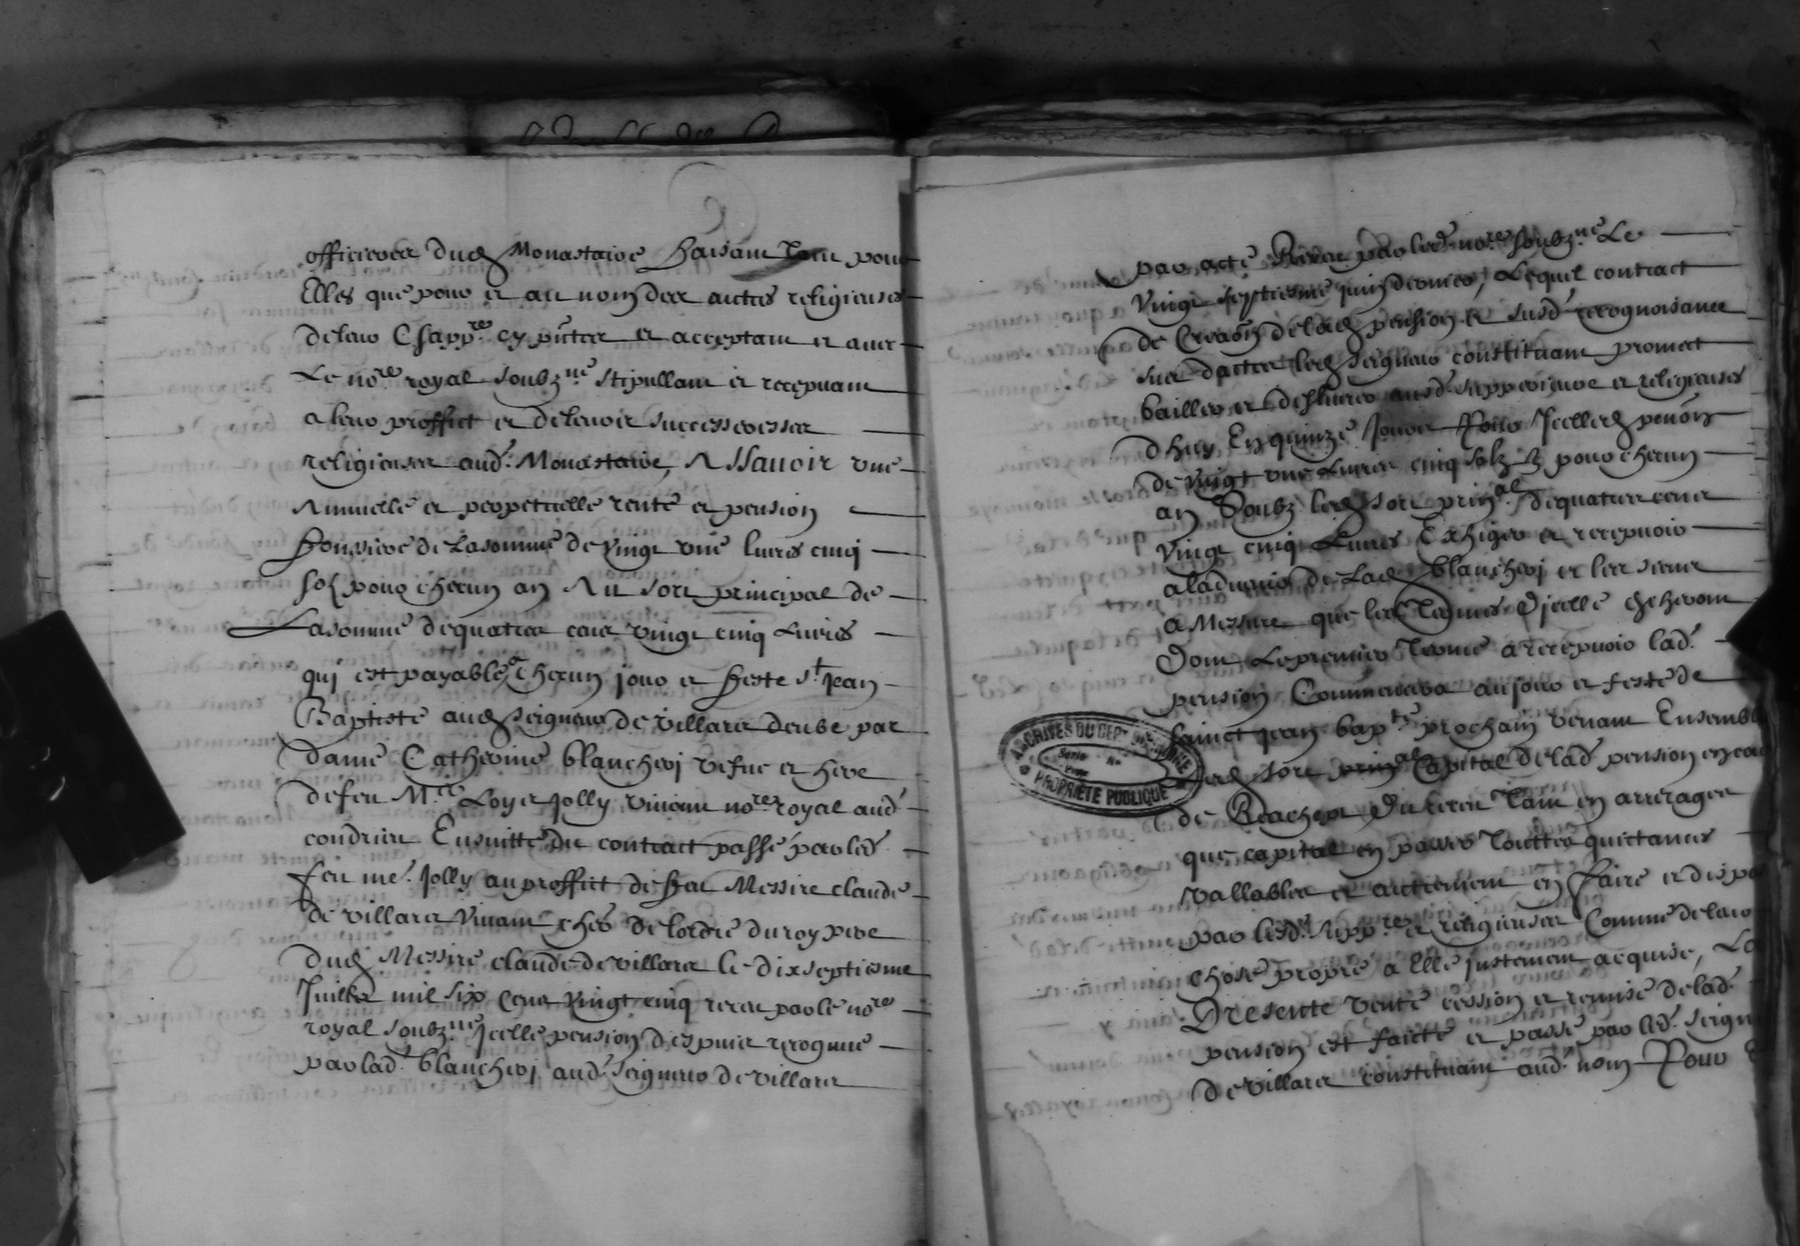 officieres dud Monastaire faisant tant pour
Elles que pour et au nom des autres religieuses
de leur Chapp.re cy pntes et acceptant et avec
Le no.re royal soubz.ne stipullant et recepvant
a leur proffict et de leurs successeresses
religieuses aud. Monastaire, Assavoir une
Annuelle et perpetuelle rente et pension
fonsiere de la somme de vingt une livres cinq
solz pour chacun an Au sort principal de
La somme de quatre cens vingt cinq Livres
qui est payable a chacun jour et feste s.t Jean
Baptiste aud seigneur de villars deube par
dame Catherine blancheri vefue et here
de feu M.re Loys Jolly vivant no.re royal aud
condrieu Ensuitte du contract passé par led
feu me. Jolly au proffict de feu Messire claude
de villars vivant cheř de lordre du roy pere
dud Messire claude de villars le dixseptiesme
Juillet mil six cens vingt cinq receu par le no.re
royal soubz.ne Icelle pension despuis recogneue
par lad. blancheri aud. seigneur de villars
par acte Receu par led no.re soubz.ne Le
vingt septiesme juin dernier, Lequel contract
de Creaon de lad pension et susd. recognoisance
led seigneur constituant promect
bailler et deslivrer ausd. supperieure et religieuses
dhuy En quinze Jours Pour Icelle pension
de vingt une Livres cinq solz pour chacun
an Soubz led sort prin.al de quatre cens
vingt cinq Livres Exhiger et recepvoir
a ladvenir de Lad blancheri et les siens
a Mesure que les termes Dicelle escherront
Dont Le premier terme a recepvoir lad.
pension Commencera au jour et feste de
sainct Jean bap.te prochain venant Ensemble
led sort prin.al Capital de lad pension en cas
de Reachept Du receu tant en arrerages
que capital en passer toutes quictances
vallables et autrement en faire et disposer
par lesd. supp.res et religieuses Comme de leur
chose propre a Elle justement acquise, La
Presente vente cession et remise de lad.
pension est faicte et passé par led. seigneur
de villars constituant aud. nom Pour
ARCHIVES DU DEPT DU RHONE
Serie No
PROPRIETE PUBLIQUE